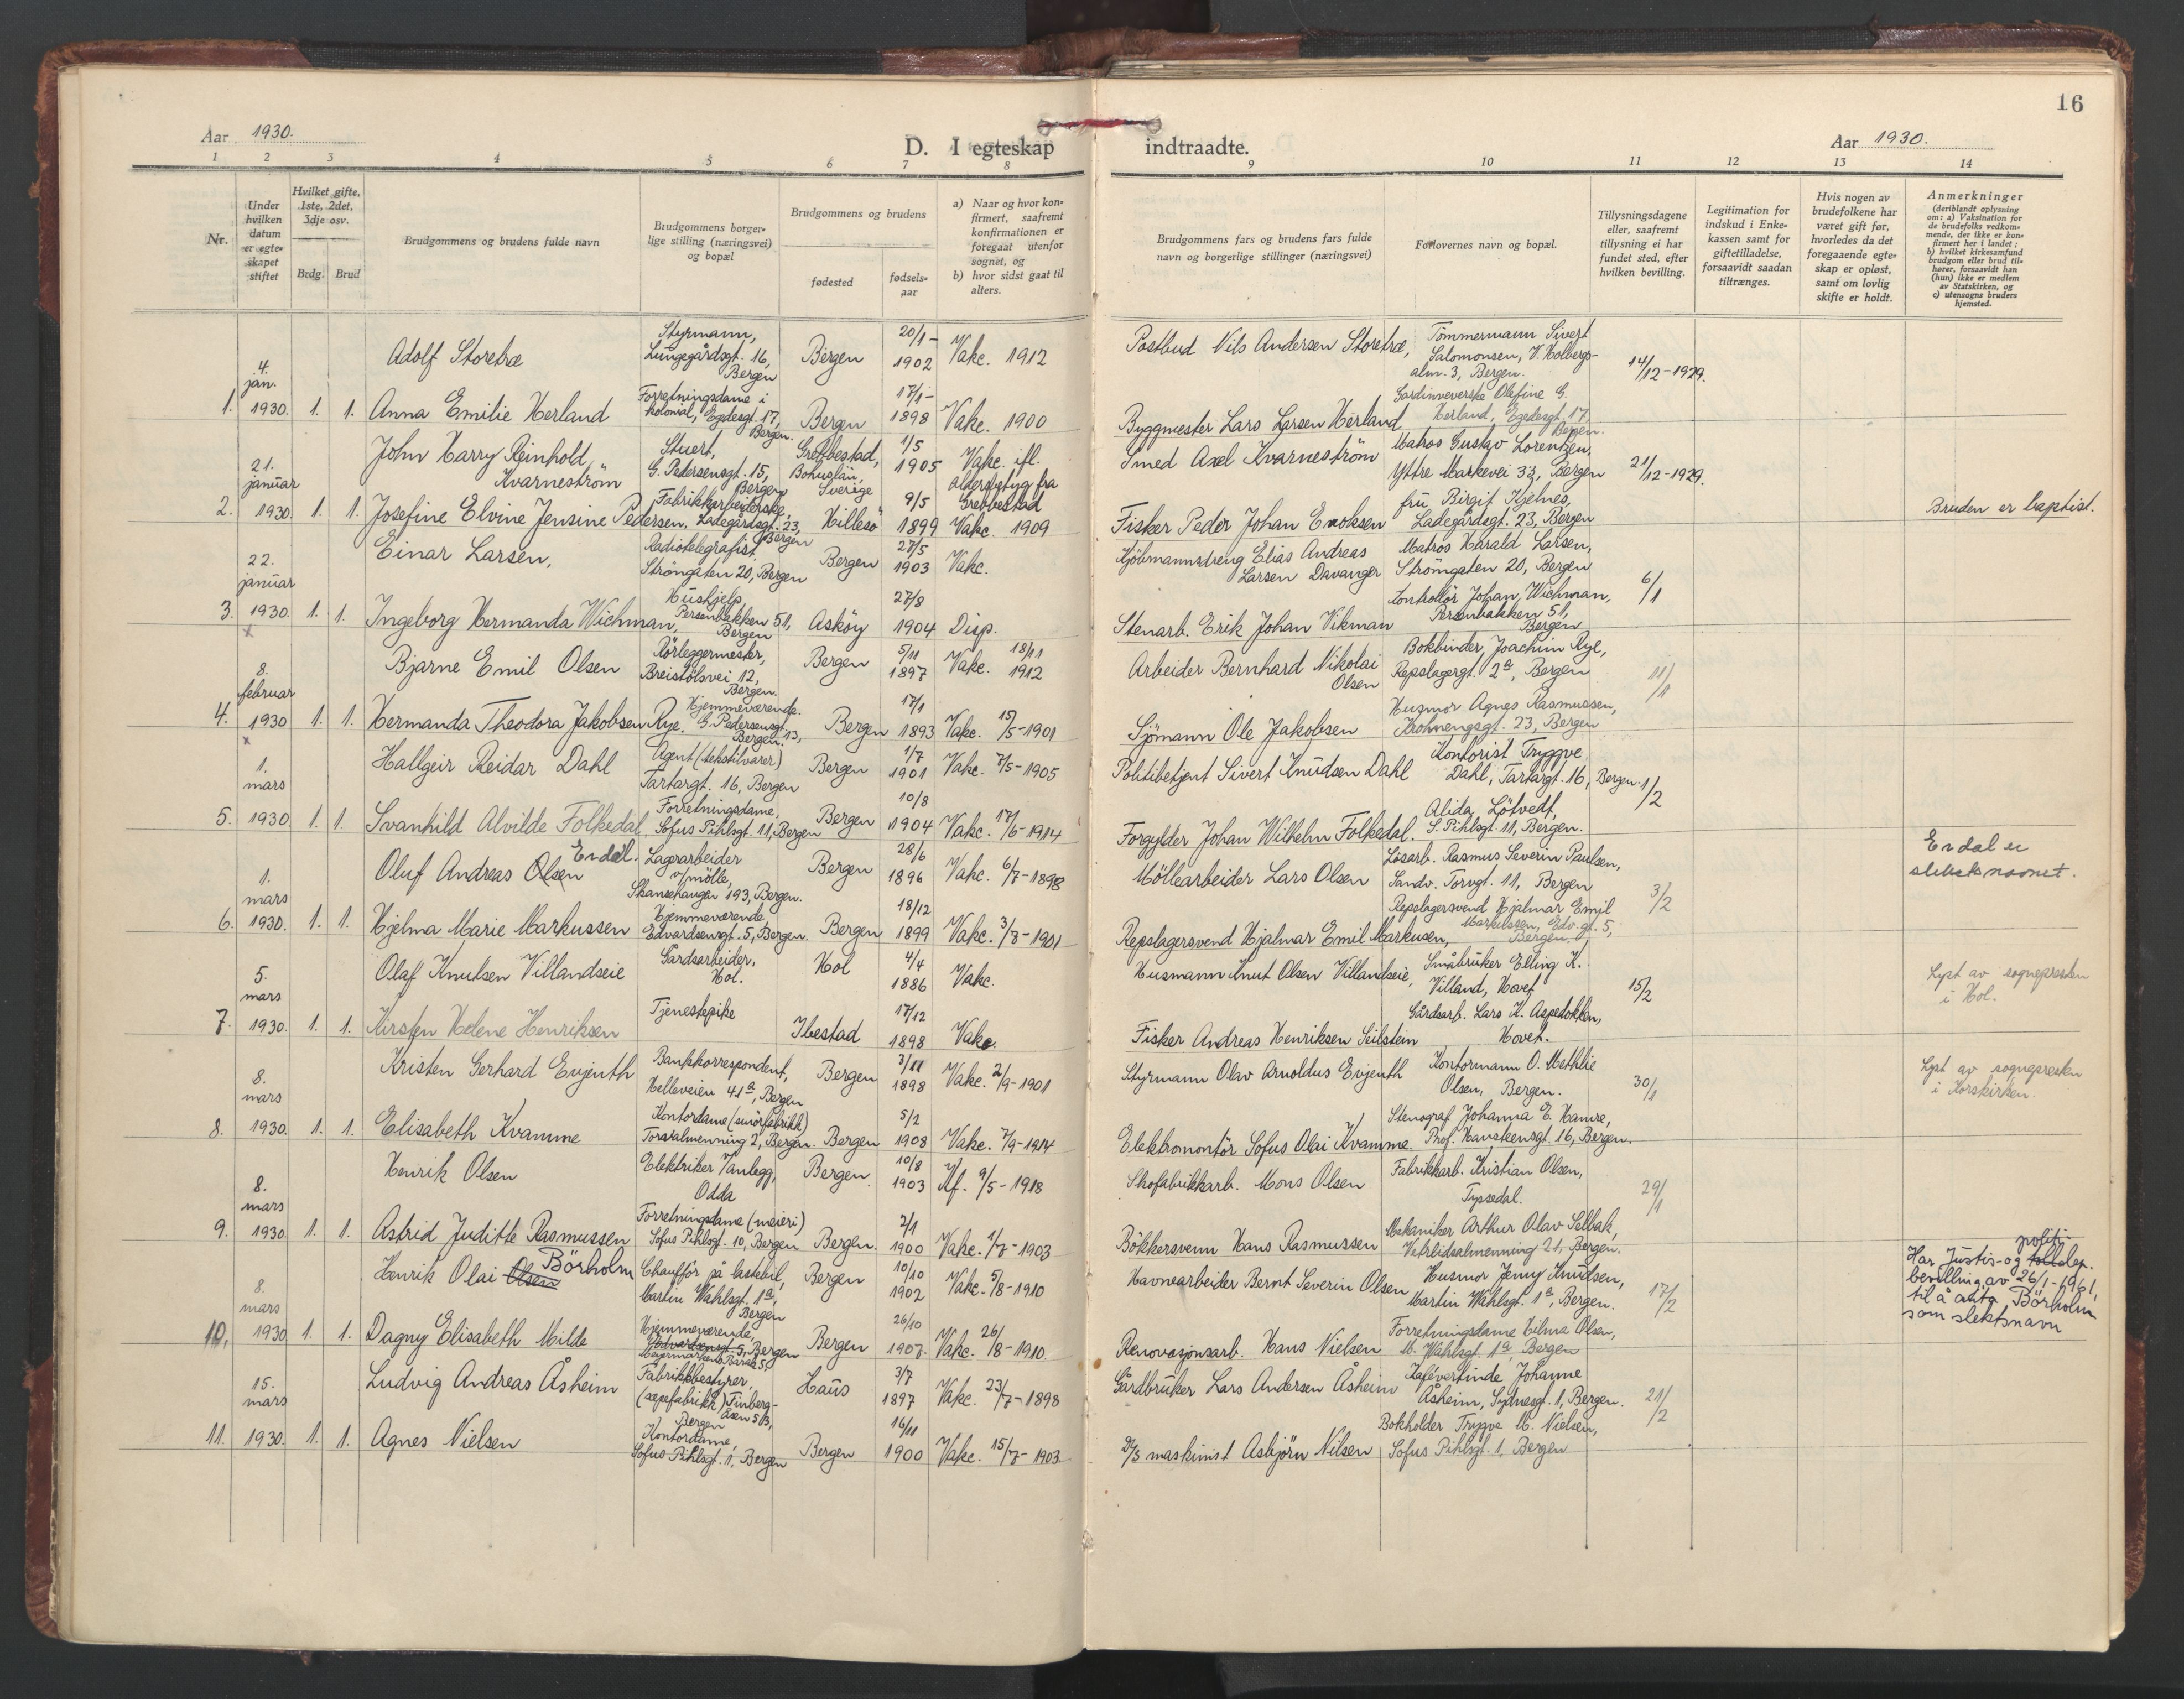 16
Aar 1930.
D. I egteskap indtraadte.
Aar 1930.
1 2 3 4 5 6 7 8 9 10 11 12 13 14
Nr.
Under hvilken datum er egteskapet stiftet
Hvilket gifte, 1ste, 2det, 3dje osv.
Brdg. Brud
Brudgommens og brudens fulde navn
Brudgommens borgerlige stilling (næringsvei) og bopæl
Brudgommens og brudens
fødested
fødselsaar
a) Naar og hvor konfirmert, saafremt konfirmationen er foregaat utenfor sognet, og
b) hvor sidst gaat til alters.
Brudgommens fars og brudens fars fulde navn og borgerlige stillinger (næringsvei)
Forlovernes navn og bopæl.
Tillysningsdagene eller, saafremt tillysning ei har fundet sted, efter hvilken bevilling.
Legitimation for indskud i Enkekassen samt for giftetilladelse, forsaavidt saadan tiltrænges.
Hvis nogen av brudefolkene har været gift før, hvorledes da det foregaaende egteskap er opløst, samt om lovlig skifte er holdt.
Anmerkninger
(deriblandt oplysning om: a) Vaksination for de brudefolks vedkommende, der ikke er konfirmert her i landet; b) hvilket kirkesamfund brudgom eller brud tilhører, forsaavidt han (hun) ikke er medlem av Statskirken, og c) utensogns bruders hjemsted.
1. 4. jan. 1930. 1. 1.
Adolf Storetræ Styrmann, Lungegårdsgt. 16, Bergen Bergen 20/1- 1902 Vakc. 1912 Postbud Nils Andersen Storetræ, Tømmermann Sivert Salomonsen, V. Holbergsalm. 3, Bergen. 14/12-1929.
Anna Emilie Herland Forretningsdame i kolonial, Egedesgt. 17, Bergen. Bergen 17/1- 1898 Vakc. 1900 Byggmester Lars Larsen Herland Gardinveverske Olefine G. Herland, Egedesgt. 17 Bergen.
2. 21. januar 1930. 1. 1.
John Harry Reinhold Kvarneström Stuert, G. Pedersensgt. 15, Bergen Grebbestad, Bohuslän, Sverige 1/5 1905 Vakc. ifl. aldersbetyg fra Grebbestad Smed Axel Kvarneström Matros Gustav Lorentzen, Yttre Markevei 33, Bergen 21/12-1929.
Josefine Elvine Jensine Pedersen, Fabrikkarbeiderske, Ladegårdsgt. 23, Bergen Hillesö 9/5 1899 Vakc. 1909 Fisker Peder Johan Enoksen fru Birgit Kjelnes, Ladegårdsgt. 23, Bergen Bruden er baptist.
3. 22. januar 1930. 1. 1.
Einar Larsen, Radiotelegrafist Strömgaten 20, Bergen Bergen 27/5 1903 Vakc. Kjöbmannsdreng Elias Andreas Larsen Davanger Matros Harald Larsen, Strömgaten 20, Bergen 6/1
Ingeborg Hermanda Wichman, Hushjelp, Persenbakken 51, Bergen Asköy 27/8 1904 Disp. Stenarb. Erik Johan Vikman Kontrollör Johan Wichman, Persenbakken 51, Bergen
4. 8. februar 1930 1. 1.
Bjarne Emil Olsen Rörleggermester, Breistölsvei 12, Bergen. Bergen 5/11 1897 Vakc. 18/11 1912 Arbeider Bernhard Nikolai Olsen Bokbinder, Joachim Rye, Repslagergt. 2ª, Bergen 11/1
Hermanda Theodora Jakobsen Rye. Hjemmeværende. G. Pedersensgt. 13, Bergen. Bergen 17/1 1893 Vakc. 15/5-1901 Sjömann Ole Jakobsen Husmor Agnes Rasmussen, Krohnengsgt. 23, Bergen
5. 1. mars 1930. 1. 1.
Hallgeir Reidar Dahl Agent (tekstilvarer) Tartargt. 16, Bergen Bergen 1/7 1901 Vakc. 7/5-1905 Politibetjent Sivert Knudsen Dahl Kontorist Tryggve Dahl, Tartargt. 16, Bergen. 1/2
Svanhild Alvilde Folkedal Forretningsdame, Sofus Pihlsgt. 11, Bergen Bergen 10/8 1904 Vakc. 17/6-1914 Forgylder Johan Wilhelm Folkedal. Alida Lötvedt, S. Pihlsgt. 11, Bergen.
6. 1. mars 1930. 1. 1.
Oluf Andreas Olsen Erdal. Lagerarbeider v/mölle, Skansehaugen 193, Bergen. Bergen 28/6 1896 Vakc. 6/7-1898 Möllearbeider Lars Olsen Lösarb. Rasmus Severin Paulsen, Sandv. Torvgt. 11, Bergen 3/2 Erdal er slektsnavnet.
Hjelma Marie Markussen Hjemmeværende, Edvardsensgt. 5, Bergen. Bergen 18/12 1899 Vakc. 3/8-1901 Repslagersvend Hjalmar Emil Markusen, Repslagersvend Hjalmar Emil Markussen, Edv.gt. 5, Bergen.
7. 5. mars 1930. 1. 1.
Olaf Knutsen Villandseie Gårdsarbeider, Hol. Hol 4/4 1886 Vakc. Husmann Knut Olsen Villandseie, Småbruker Elling K. Villand, Hovet 15/2 Lyst av sognepresten i Hol.
Kirsten Helene Henriksen Tjenestepike Ibestad 17/12 1898 Vakc. Fisker Andreas Henriksen Seilstein Gårdsarb. Lars K. Aspelokken, Hovet.
8. 8. mars 1930. 1. 1.
Kristen Gerhard Evjenth Bankkorrespondent, Helleveien 41ª, Bergen Bergen 3/11 1898 Vakc. 2/9-1901 Styrmann Olav Arnoldus Evjenth Kontormann O. Methlie Olsen, Bergen. 30/1 Lyst av sognepresten i Korskirken.
Elisabeth Kvamme Kontordame (smörfabrikk) Torvalmenning 2, Bergen. Bergen 5/2 1908 Vakc. 7/9-1914 Elektromontör Sofus Olai Kvamme. Stenograf Johanna E. Hamre, Prof. Hansteensgt. 16, Bergen.
9. 8. mars 1930. 1. 1.
Henrik Olsen Elektriker v/anlegg, Odda Bergen 10/8 1903 Kf. 9/5-1918 Skofabrikkarb. Mons Olsen Fabrikkarb. Kristian Olsen, Tyssedal. 29/1
Astrid Juditte Rasmussen Forretningsdame (meieri) Sofus Pihlsgt. 10, Bergen Bergen. 2/1 1900 Vakc. 1/7-1903 Bökkersvenn Hans Rasmussen Mekaniker Arthur Olav Selbak, Vetrlidsalmenning 21, Bergen.
10. 8. mars 1930 1. 1.
Henrik Olai Olsen Börholm Chaufför på lastebil, Martin Wahlsgt. 1ª, Bergen Bergen 10/10 1902 Vakc. 5/8-1910 Havnearbeider Bernt Severin Olsen Husmor Jenny Knudsen, Martin Wahlsgt. 1ª, Bergen. 17/2 Har Justis- og politidep. bevilling av 26/1-1961, til å anta Börholm som slektsnavn
Dagny Elisabeth Milde Hjemmeværende, Edvardsensgt. 5, Bergen Bergen 26/10 1907. Vakc. 26/8-1910 Renovasjonsarb. Hans Nielsen Forretningsdame Hilma Olsen, M. Wahlsgt. 1ª, Bergen
11. 15. mars 1930. 1. 1.
Ludvig Andreas Åsheim Fabrikkbestyrer, (sepefabrikk) Finbergåsen 5B, Bergen Haus 3/7 1897 Vakc. 23/7-1898 Gårdbruker Lars Andersen Åsheim Kafévertinde Johanne Åsheim, Sydnesgt. 1, Bergen. 21/2
Agnes Nielsen Kontordame, Sofus Pihlsgt. 1, Bergen Bergen 16/11 1900 Vakc. 15/7-1903 D/S maskinist Asbjörn Nilsen Bokholder Trygve M. Nielsen, Sofus Pihlsgt. 1, Bergen